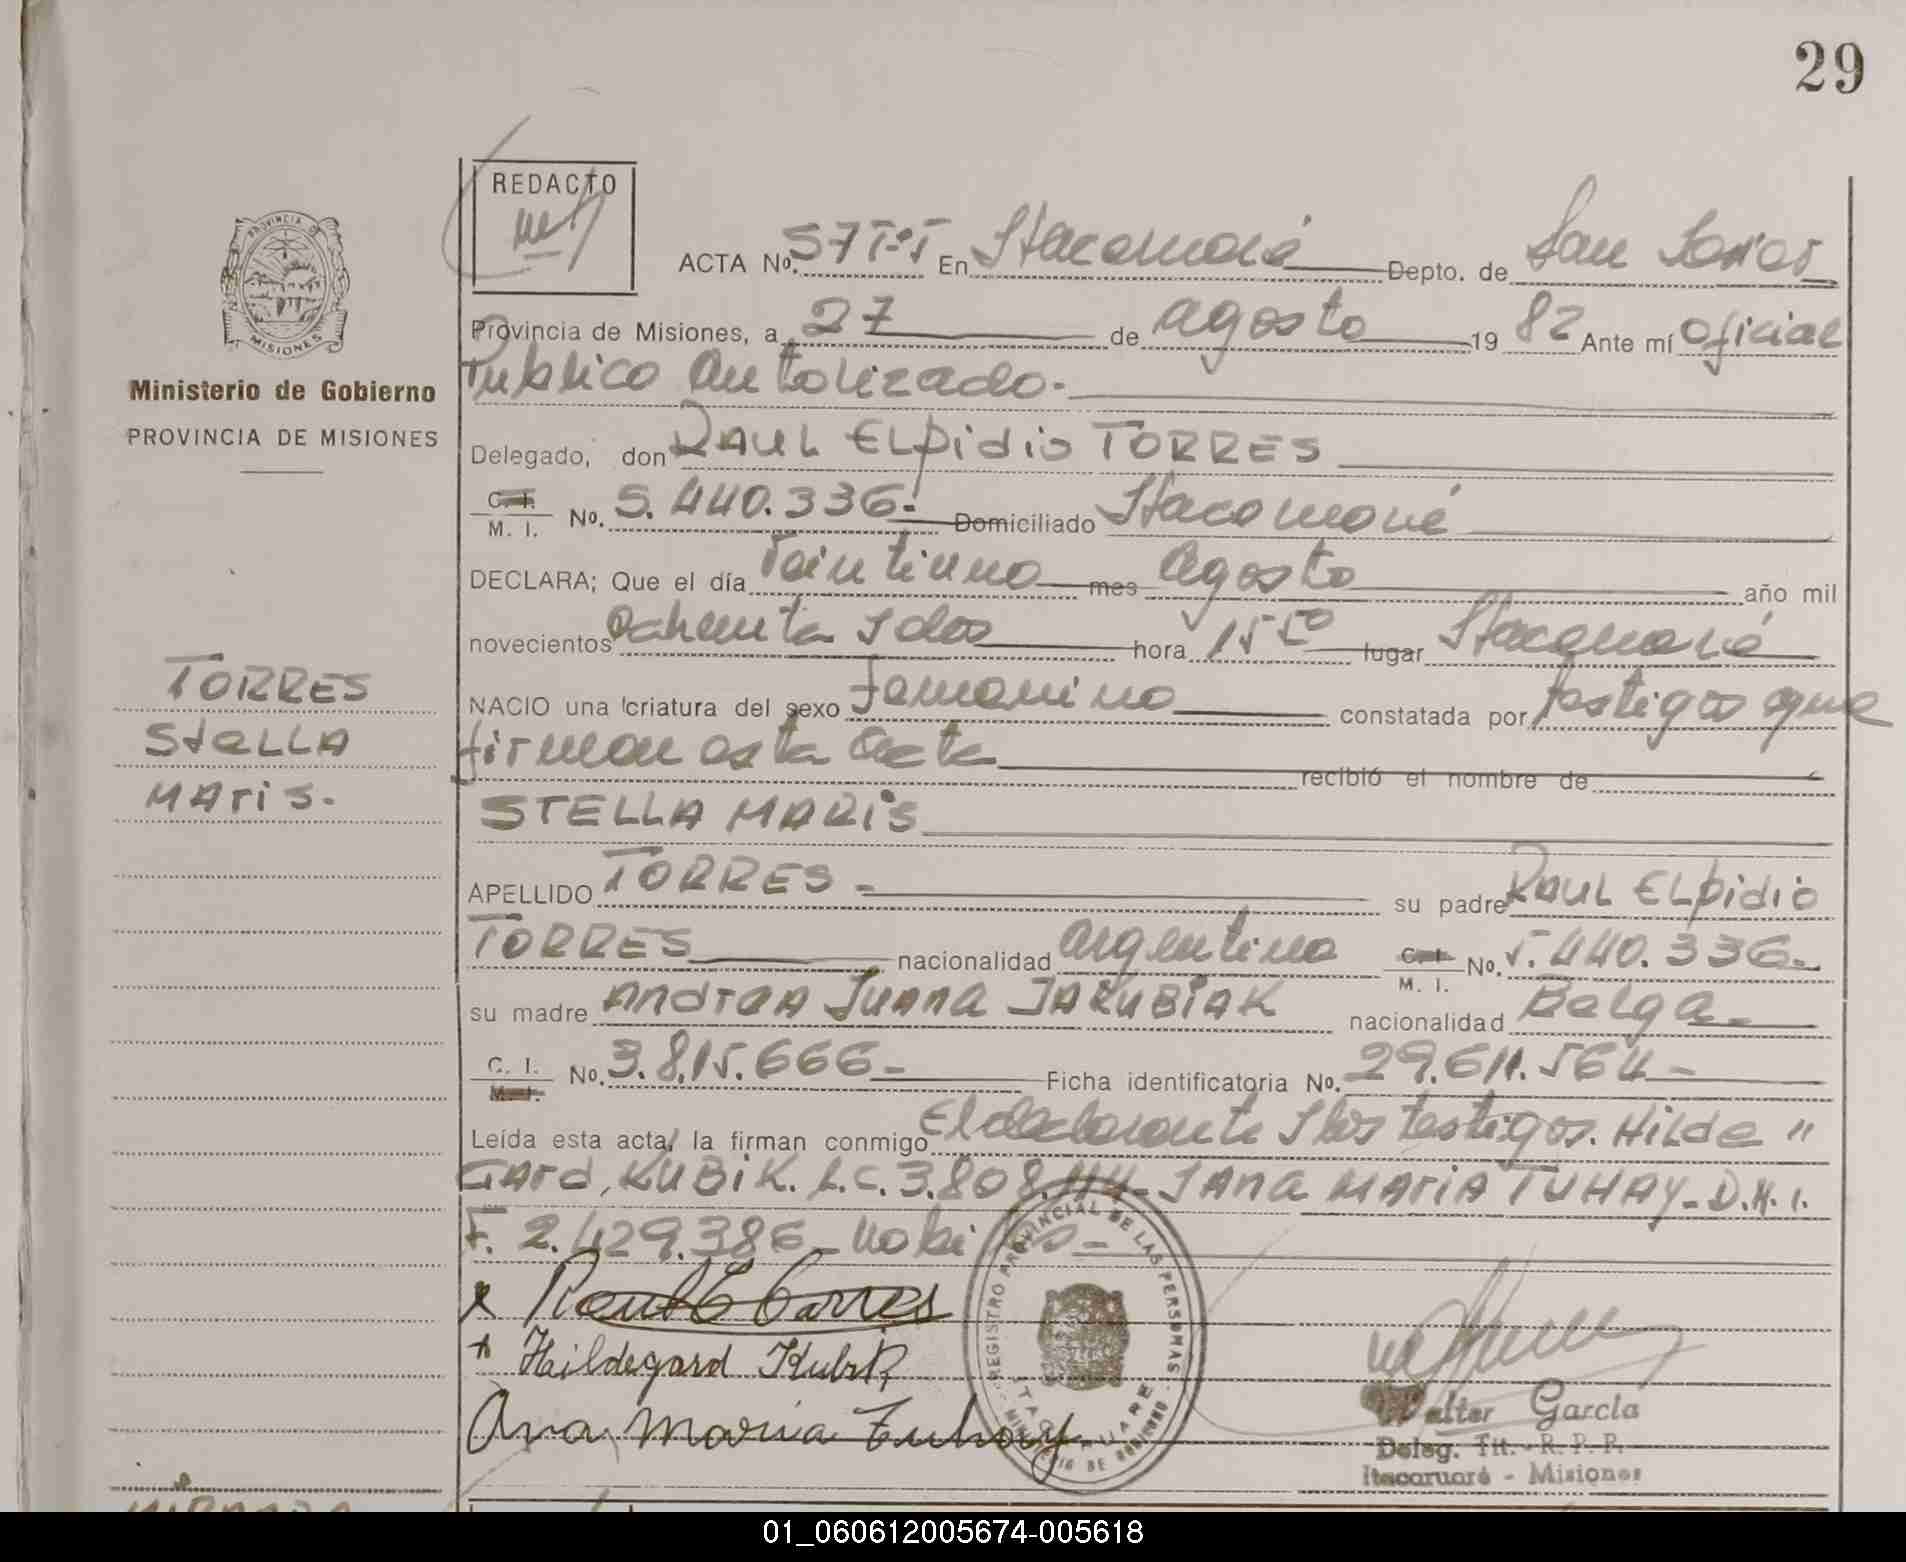 29
REDACTO
PROVINCIA DE
MISIONES
Ministerio de Gobierno
PROVINCIA DE MISIONES
TORRES
STELLA
MARIS.
ACTA No. 57 T:I En Itacaruaré Depto. de San Javier
Provincia de Misiones, a 27 de agosto 19 82 Ante mí Oficial
Publico Autorizado.
Delegado, don RAUL ELPIDIO TORRES
C. I. M. I. No. 5.440.336.- Domiciliado Itacaruaré
DECLARA; Que el día veintiuno mes Agosto año mil
novecientos ochenta y dos hora 15 50 lugar Itacaruaré
NACIO una criatura del sexo femenino constatada por testigos que
firman esta acta recibió el nombre de
STELLA MARIS
APELLIDO TORRES - su padre RAUL ELPIDIO
TORRES nacionalidad argentino C. I. M. I. No. 5.440.336.-
su madre ANDREA JUANA JAKUBIAK nacionalidad Belga.-
C. I. M. I. No. 3.815.666.- Ficha identificatoria No. 29.611.564.-
Leída esta acta, la firman conmigo El declarante y los testigos. HILDE "
GARD, KUBIK. L.C. 3.808.114- y ANA MARIA TUHAY- D.N.I.
F. 2.429.386-
Raul E Torres
Hildegard Kubik
Ana Maria Tuhay
REGISTRO PROVINCIAL DE LAS PERSONAS
ITACARUARE
MINISTERIO DE GOBIERNO
Walter García
Deleg. Tit. - R. P. P.
Itacaruaré - Misiones
01_060612005674-005618